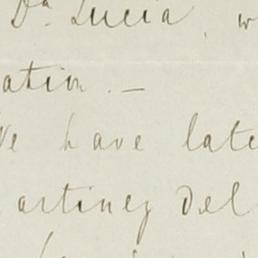 Da. Lucia, w
ation. —
We have late
artinez del